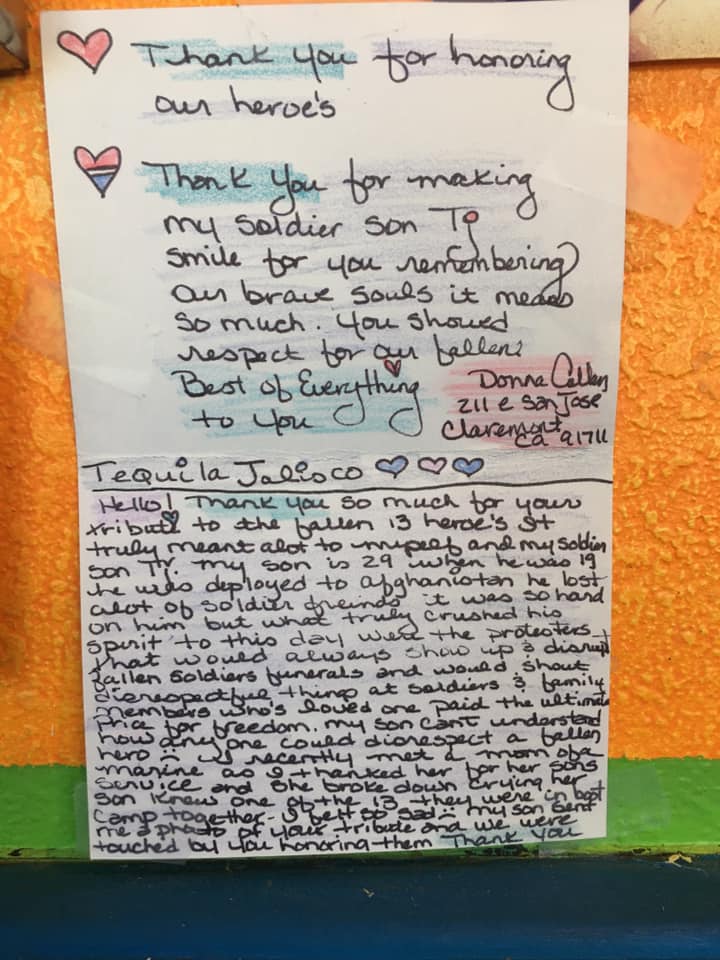 Thank you for honoring
our heroe's
Thank you for making
my soldier son Ty
smile for you remembering
our brave souls it means
so much. You showed
respect for our fallen
Best of Everything
to you
Donna
211 e San Jose
Claremont
Ca 91711
Tequila Jalisco
Hello! Thank you so much for your
tribute to the fallen 13 heroe's It
truly meant alot to myself and my soldier
son Ty. my son is 29 when he was 19
he was deployed to afghanistan he lost
alot of soldier freinds it was so hard
on him but what truly crushed his
spirit to this day were the protesters
that would always show up & disrupt
fallen soldiers funerals and would shout
disrespectful things at soldiers & family
members who's loved one paid the ultimate
price for freedom. my son cant understand
how any one could disrespect a fallen
hero we recently met a mom of a
marine as I thanked her for her sons
service and she broke down crying her
son knew one of the 13 they were in boot
camp together - I felt so sad my son sent
me a photo of your tribute and we were
touched by you honoring them Thank you